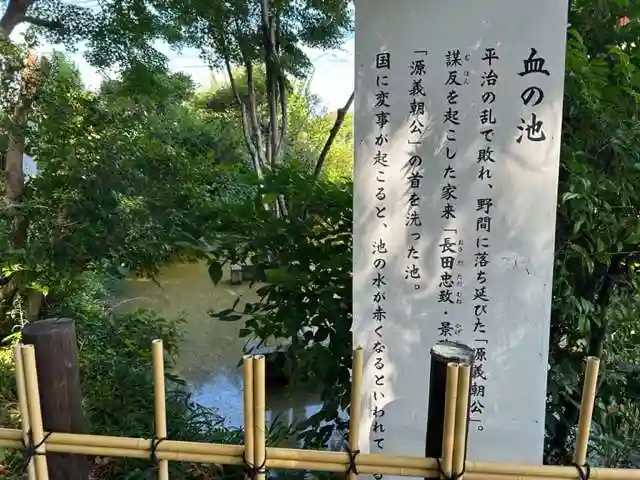 血の池
平治の乱で敗れ、野間に落ち延びた「源義朝公」。
謀反を起こした家来「長田忠致・景
「源義朝公」の首を洗った池。
国に変事が起こると、池の水が赤くなるといわれて